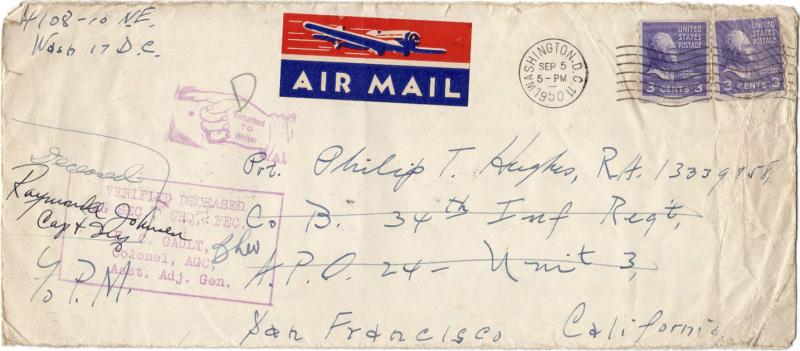 4108-10 NE.
Wash 17 D.C.
AIR MAIL
WASHINGTON, D.C. 11
SEP 5
5-PM
1950
UNITED
STATES
POSTAGE
3 CENTS 3
UNITED
STATES
POSTAGE
3 CENTS 3
D
Returned
TO
Writer
Deceased
VERIFIED DECEASED
SEC GHQ, FEC.
GAULT,
Colonel, AGC,
Asst. Adj. Gen.
Raymond
Capt Inf
Pvt. Philip T. Hughes, R.A. 13339958,
Co B. 34th Inf Regt,
A.P.O. 24- Unit 3,
c/o P.M.
San Francisco California